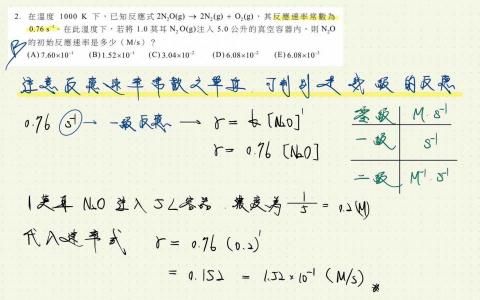 2. 在溫度 1000 K 下，已知反應式 2N₂O(g) → 2N₂(g) + O₂(g)，其反應速率常數為
0.76 s⁻¹。在此溫度下，若將 1.0 莫耳 N₂O(g)注入 5.0 公升的真空容器內，則 N₂O
的初始反應速率是多少（M/s）？
B
(A) 7.60×10⁻¹ (B) 1.52×10⁻¹ (C) 3.04×10⁻² (D) 6.08×10⁻² (E) 6.08×10⁻³
注意反應速率常數之單位 可判別是幾級的反應
0.76 s⁻¹ → 一級反應 → r = k [N₂O]¹
r = 0.76 [N₂O]
零級 M·s⁻¹
一級 s⁻¹
二級 M⁻¹·s⁻¹
1莫耳 N₂O 注入 5L容器 濃度為 1/5 = 0.2(M)
代入速率式 r = 0.76 (0.2)¹
= 0.152 = 1.52×10⁻¹ (M/s)